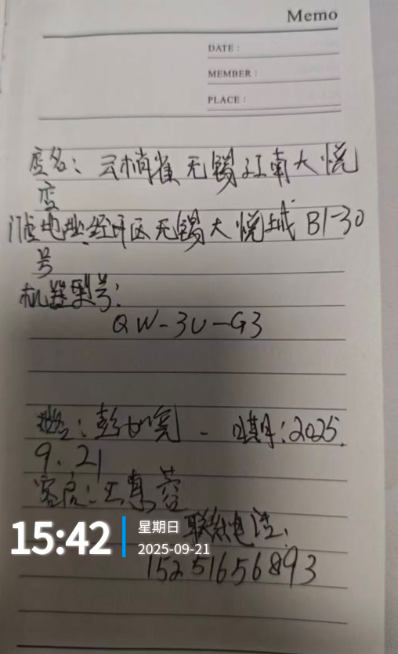 Memo
DATE:
MEMBER:
PLACE:
店名: 云梢雀 无锡江南大悦
店
门店地址经开区无锡大悦城 B1-30
号
机器型号:
QW-3U-G3
彭 日期:2025.
9.21
客户:王
联系电话:
15:42
星期日
2025-09-21
15251656893